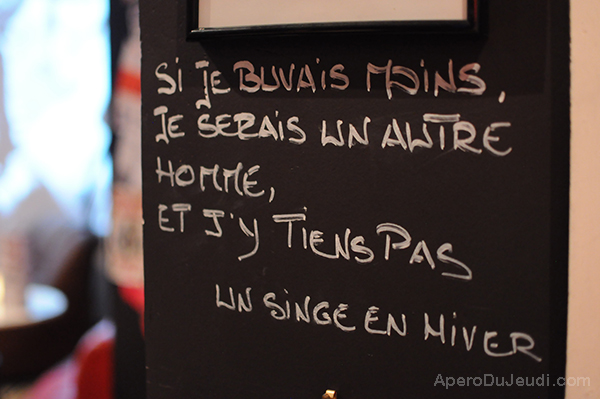 SI JE BUVAIS MOINS,
JE SERAIS UN AUTRE
HOMME,
ET J'Y TIENS PAS
UN SINGE EN HIVER
AperoDuJeudi.com